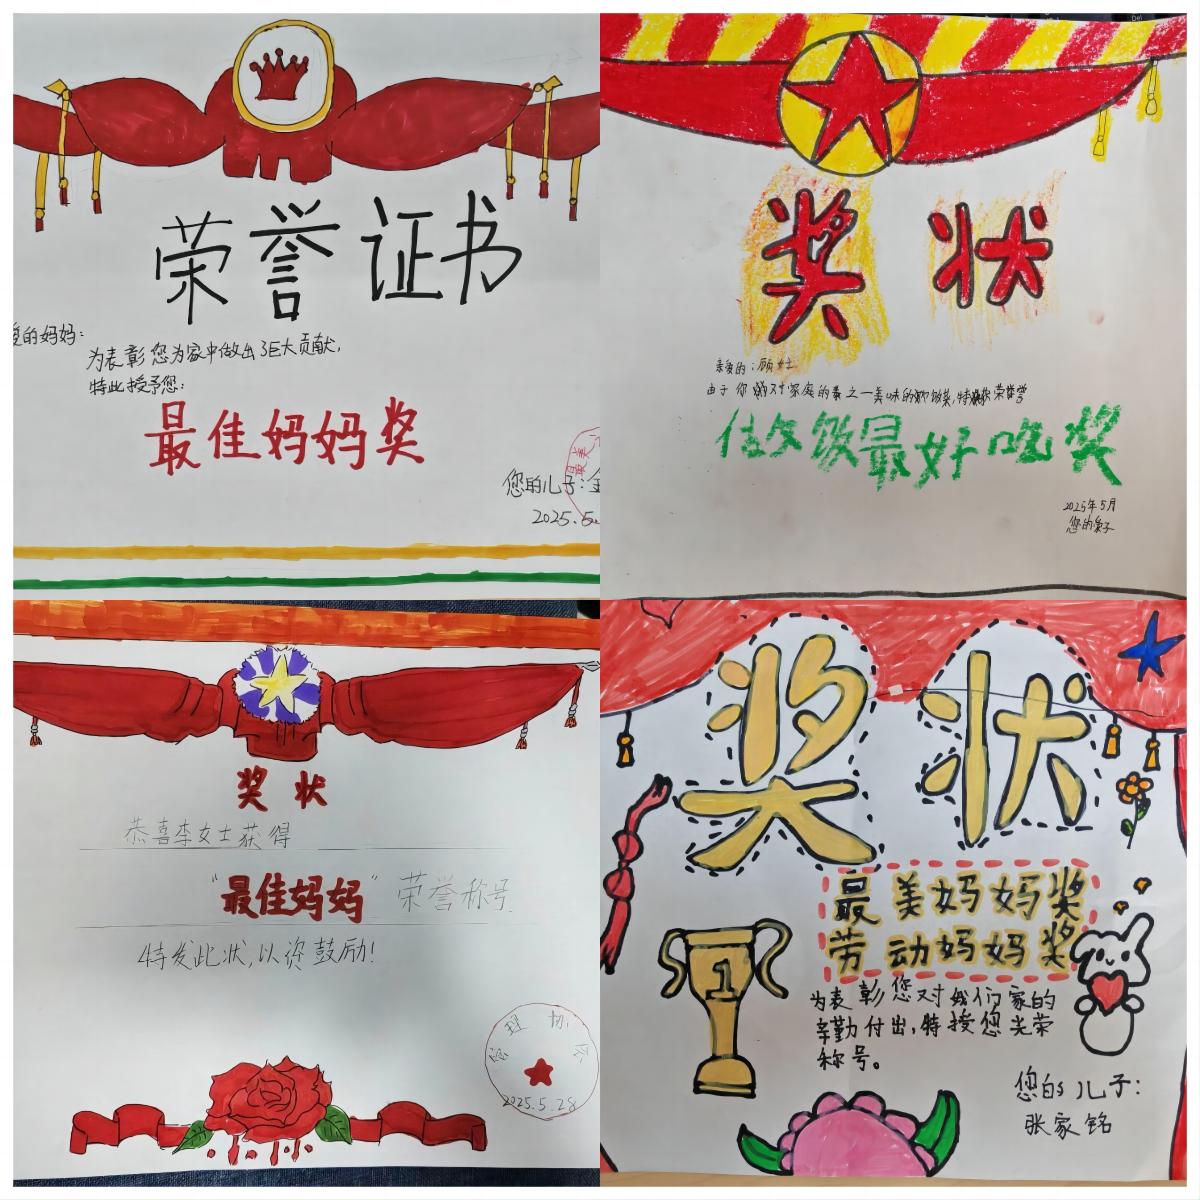 荣誉证书
爱的妈妈：
为表彰您为家中做出了巨大贡献，
特此授予您：
最佳妈妈奖
最美
您的儿子：金
2025.5.
奖状
亲爱的：顾女士
做饭最好吃奖
2025年5月
您的儿子
奖状
恭喜李女士获得
“最佳妈妈”荣誉称号
特发此状，以资鼓励！
管理协会
2025.5.28
奖状
最美妈妈奖
劳动妈妈奖
1
为表彰您对我们家的
辛勤付出，特授您光荣
称号。
您的儿子：
张家铭